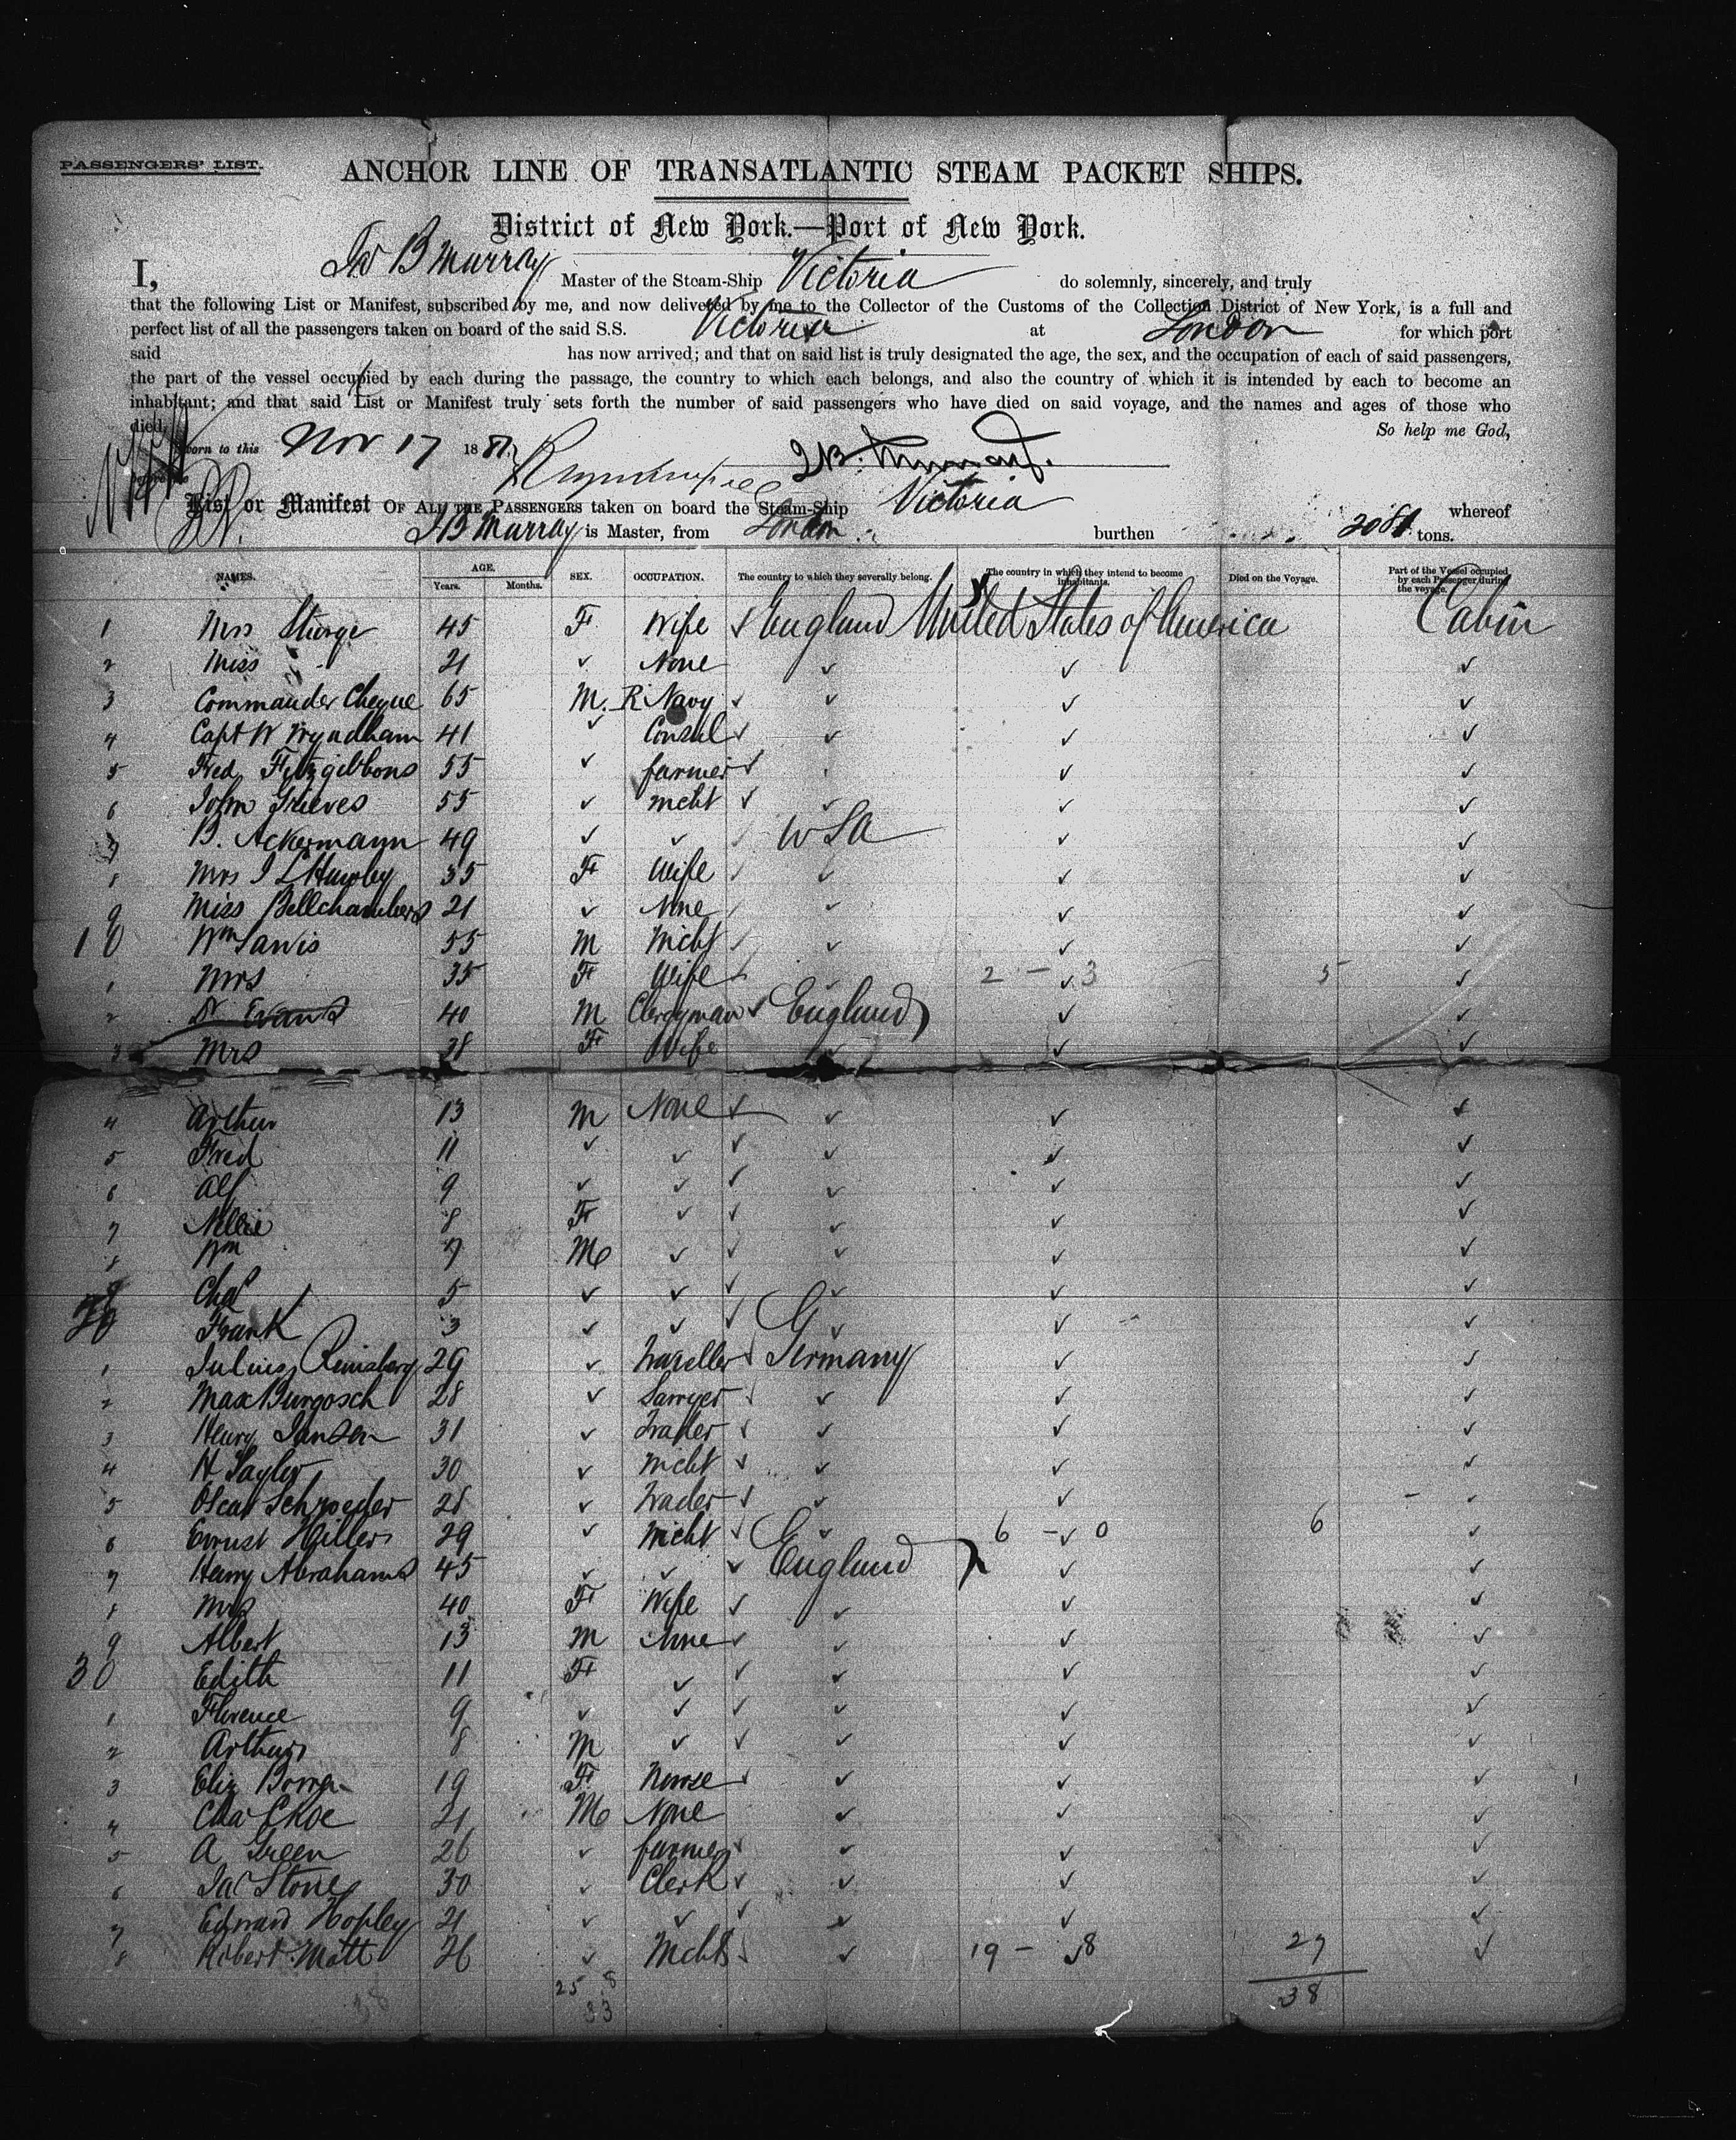 PASSENGERS' LIST.
ANCHOR LINE OF TRANSATLANTIC STEAM PACKET SHIPS.
District of New York.—Port of New York.
I, Jas B Murray Master of the Steam-Ship Victoria do solemnly, sincerely, and truly
that the following List or Manifest, subscribed by me, and now delivered by me to the Collector of the Customs of the Collection District of New York, is a full and
perfect list of all the passengers taken on board of the said S.S. Victoria at London for which port
said has now arrived; and that on said list is truly designated the age, the sex, and the occupation of each of said passengers,
the part of the vessel occupied by each during the passage, the country to which each belongs, and also the country of which it is intended by each to become an
inhabitant; and that said List or Manifest truly sets forth the number of said passengers who have died on said voyage, and the names and ages of those who
died. So help me God,
Sworn to this Nov 17 1881 J.B. Murray.
List or Manifest OF ALL THE PASSENGERS taken on board the Steam-Ship Victoria whereof
J B Murray is Master, from London burthen 2081 tons.
NAMES. AGE. Years. Months. SEX. OCCUPATION. The country to which they severally belong. The country in which they intend to become inhabitants. Died on the Voyage. Part of the Vessel occupied by each Passenger during the voyage.
1 Mrs Sturge 45 F Wife ✓ England United States of America Cabin
2 Miss " 21 ✓ None ✓ ✓ ✓
3 Commander Cheyne 65 M. R Navy ✓ ✓ ✓ ✓
4 Capt W Wyndham 41 ✓ Consul ✓ ✓ ✓ ✓
5 Fred Fitzgibbons 55 ✓ farmer ✓ ✓ ✓
6 John Grieves 55 ✓ Mcht ✓ ✓ ✓ ✓
7 B. Ackermann 49 ✓ ✓ USA ✓ ✓
8 Mrs J L Hawley 35 F Wife ✓ ✓ ✓
9 Miss Bellchambers 21 ✓ None ✓ ✓ ✓
10 Wm 55 M Mcht ✓ ✓ ✓
1 Mrs 35 F Wife 2 - 3 5 ✓
2 Dr Evans 40 M Clergyman ✓ England ✓ ✓
3 Mrs 38 F Wife ✓ ✓ ✓
4 Arthur 13 M None ✓ ✓ ✓
5 Fred 11 ✓ ✓ ✓ ✓ ✓ ✓
6 Alf 9 ✓ ✓ ✓ ✓ ✓ ✓
7 Nellie 8 F ✓ ✓ ✓ ✓ ✓
8 Wm 7 M ✓ ✓ ✓ ✓ ✓
9 Chas 5 ✓ ✓ ✓ ✓ ✓ ✓
20 Frank 3 ✓ ✓ ✓ ✓ ✓ ✓
1 Julius 29 ✓ Traveller Germany ✓ ✓
2 Max Burgosch 28 ✓ Lawyer ✓ ✓ ✓
3 Henry Jansen 31 ✓ Trader ✓ ✓ ✓ ✓
4 H 30 ✓ Mcht ✓ ✓ ✓ ✓
5 Oscar Schroeder 28 ✓ Trader ✓ ✓ ✓ ✓
6 Ernst Hillers 29 ✓ Mcht ✓ ✓ 6 - 0 6 ✓
7 Henry Abrahams 45 ✓ ✓ ✓ England ✓ ✓
8 Mrs 40 F Wife ✓ ✓ ✓ ✓
9 Albert 13 M None ✓ ✓ ✓ ✓
30 Edith 11 F ✓ ✓ ✓ ✓ ✓
1 Florence 9 ✓ ✓ ✓ ✓ ✓ ✓
2 Arthur 8 M ✓ ✓ ✓ ✓ ✓
3 Eliz 19 F Nurse ✓ ✓ ✓
4 Chas 21 M None ✓ ✓ ✓
5 A Green 26 ✓ farmer ✓ ✓ ✓ ✓
6 Jas Stone 30 ✓ Clerk ✓ ✓ ✓ ✓
7 Edward Hopley 21 ✓ ✓ ✓ ✓ ✓ ✓
8 Robert Mott 26 ✓ Mcht ✓ ✓ 19 - 8 27 ✓
25 8 38
38 33